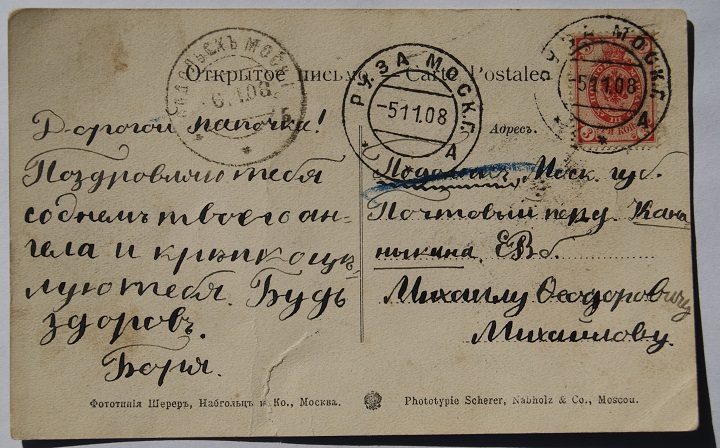 Открытое письмо. Carte Postale.
ПОДОЛЬСКЪ МОСК.
РУЗА МОСК.Г.
-5 11.08
А
РУЗА МОСК.Г.
-5 11.08
А
Адресъ.
Дорогой папочка!
Поздровляю тебя
со днемъ твоего ан-
гела и крѣпко цѣ-
лую тебя. Будь
здоровъ.
Боря.
Подольскъ, Моск. губ.
Почтовый пер.
Михаилу Ѳеодоровичу
Михайлову.
Фототипія Шереръ, Набгольцъ и Ко., Москва.
Phototypie Scherer, Nabholz & Co., Moscou.